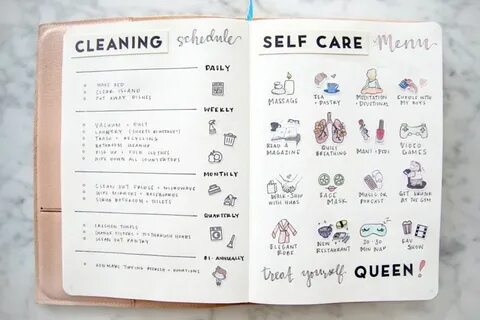 CLEANING schedule
DAILY
MAKE BED
CLEAR ISLAND
PUT AWAY DISHES
WEEKLY
VACUUM + DUST
LAUNDRY (SHEETS BIWEEKLY)
TRASH + RECYCLING
BATHROOM CLEANUP
PICK UP + FOLD CLOTHES
WIPE DOWN ALL COUNTERTOPS
MONTHLY
CLEAN OUT FRIDGE + MICROWAVE
WIPE MIRRORS + BASEBOARDS
SCRUB BATHROOM + TOILETS
QUARTERLY
FRESHEN TOWELS
CHANGE FILTERS + TOOTHBRUSH HEADS
CLEAN OUT PANTRY
BI-ANNUALLY
+ DONATIONS
SELF CARE Menu
MASSAGE
TEA + PASTRY
MEDITATION + DEVOTIONAL
CUDDLE WITH MY BOYS
READ A MAGAZINE
QUIET BREATHING
MANI + PEDI
VIDEO GAMES
WALK + SHOP WITH HUBS
FACE MASK
MUSIC OR PODCAST
GET SWOLE AT THE GYM
ELEGANT ROBE
NEW RESTAURANT
20-30 MIN NAP
FAV SHOW
treat yourself QUEEN!